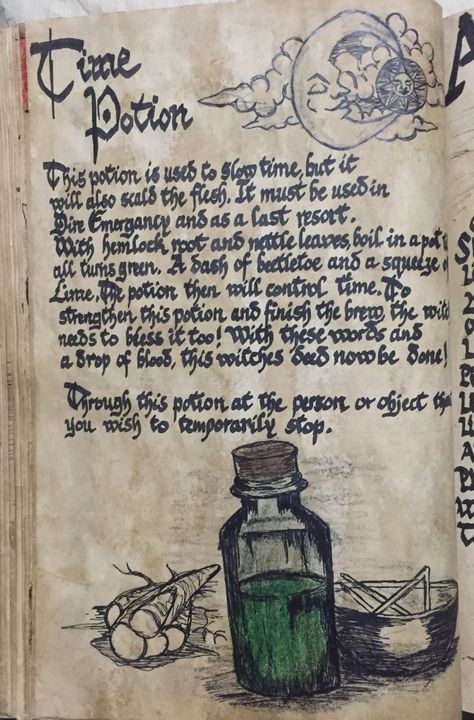 Time
Potion
This potion is used to slow time, but it
will also scald the flesh. It must be used in
Dire Emergancy and as a last resort.
With hemlock root and nettle leaves, boil in a pot
all turns green. A dash of beetletoe and a squeeze
Lime, The potion then will control time. To
strengthen this potion and finish the brew, the
needs to bless it too! With these words and
a drop of blood, this witches deed now be done!
Through this potion at the person or object
you wish to temporarily stop.